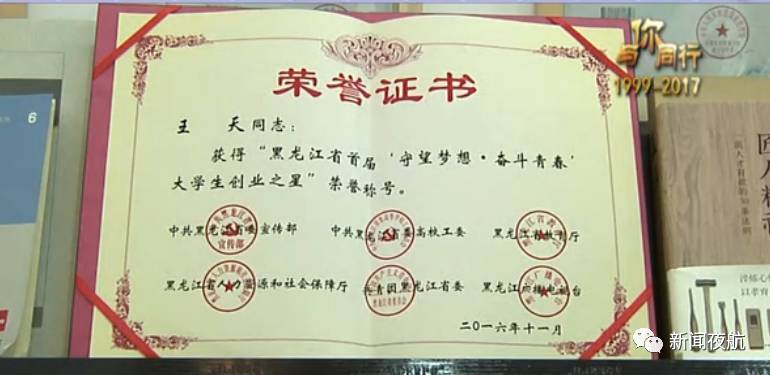 你
与 同行
1999-2017
6
荣誉证书
王 天同志：
获得“黑龙江省首届‘守望梦想·奋斗青春’
大学生创业之星”荣誉称号。
中共黑龙江省委宣传部 中共黑龙江省委高校工委 黑龙江省教育厅
宣传部
黑龙江省人力资源和社会保障厅 共青团黑龙江省委 黑龙江广播电视台
二〇一六年十一月
匠人精神
以孝育
新闻夜航